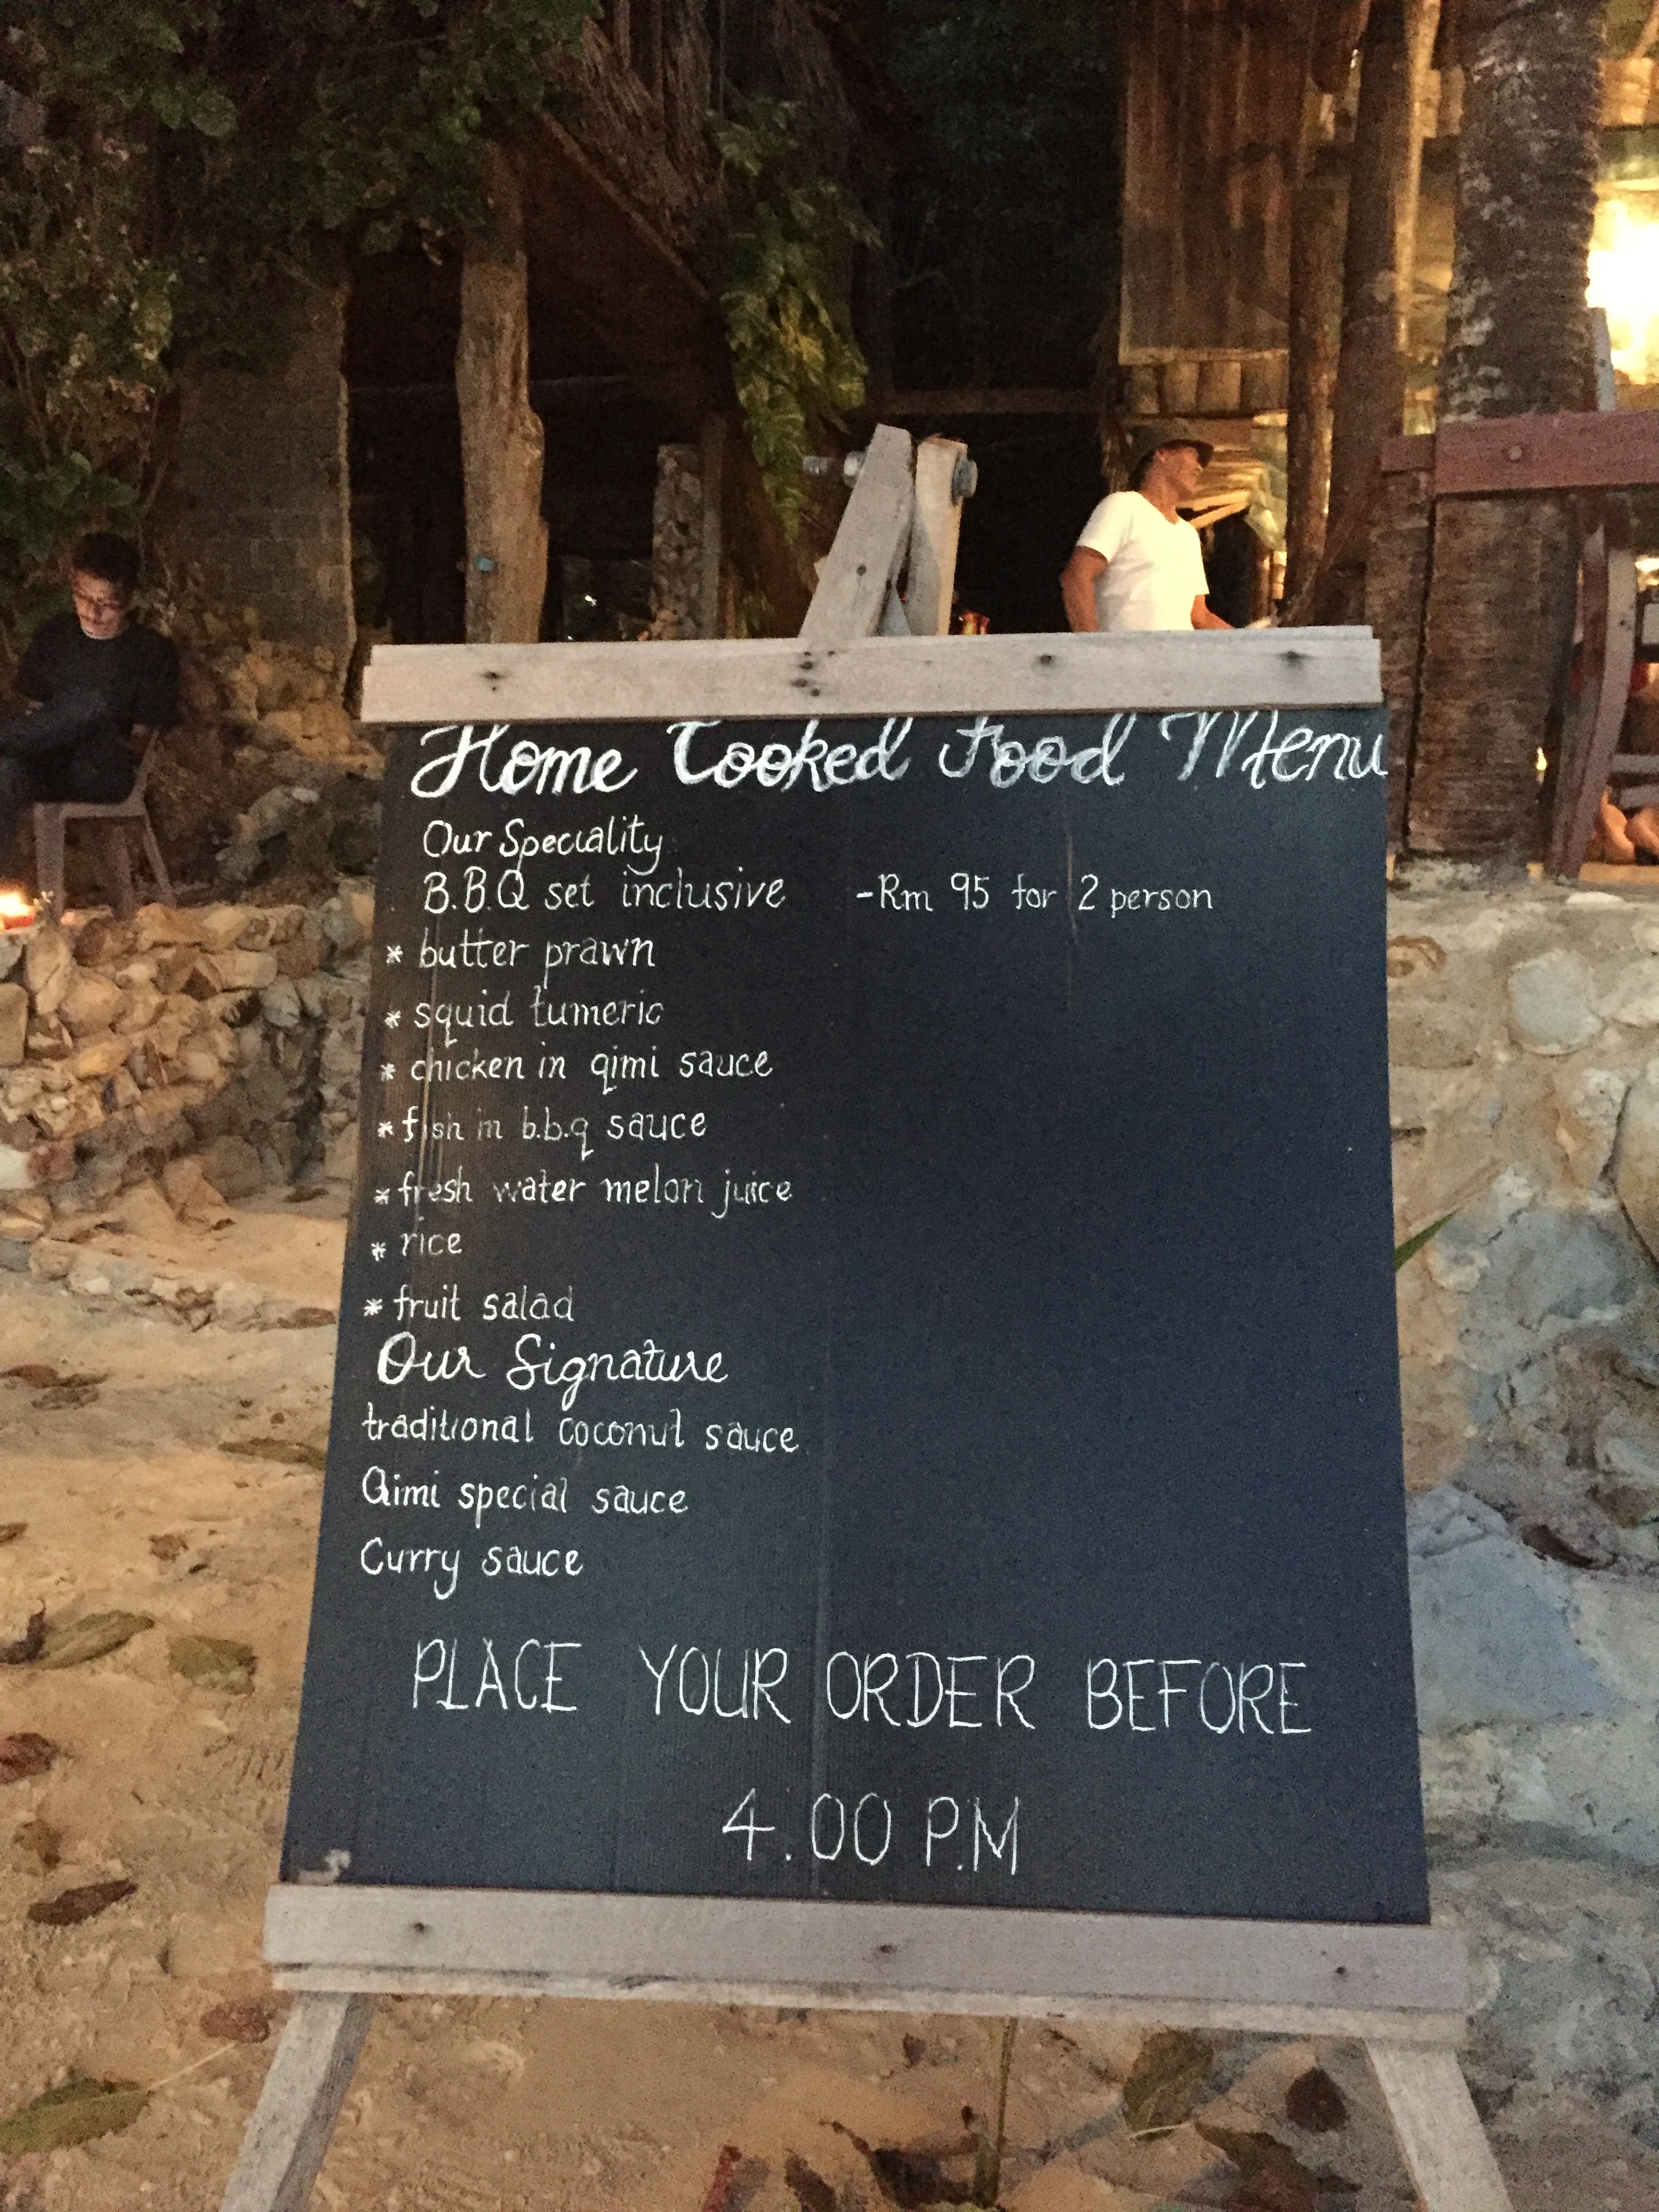 Home Cooked Food Menu
Our Speciality
B.B.Q set inclusive -Rm 95 for 2 person
* butter prawn
* squid tumeric
* chicken in qimi sauce
* fish in b.b.q sauce
* fresh water melon juice
* rice
* fruit salad
Our Signature
traditional coconut sauce
Qimi special sauce
Curry sauce
PLACE YOUR ORDER BEFORE
4.00 P.M